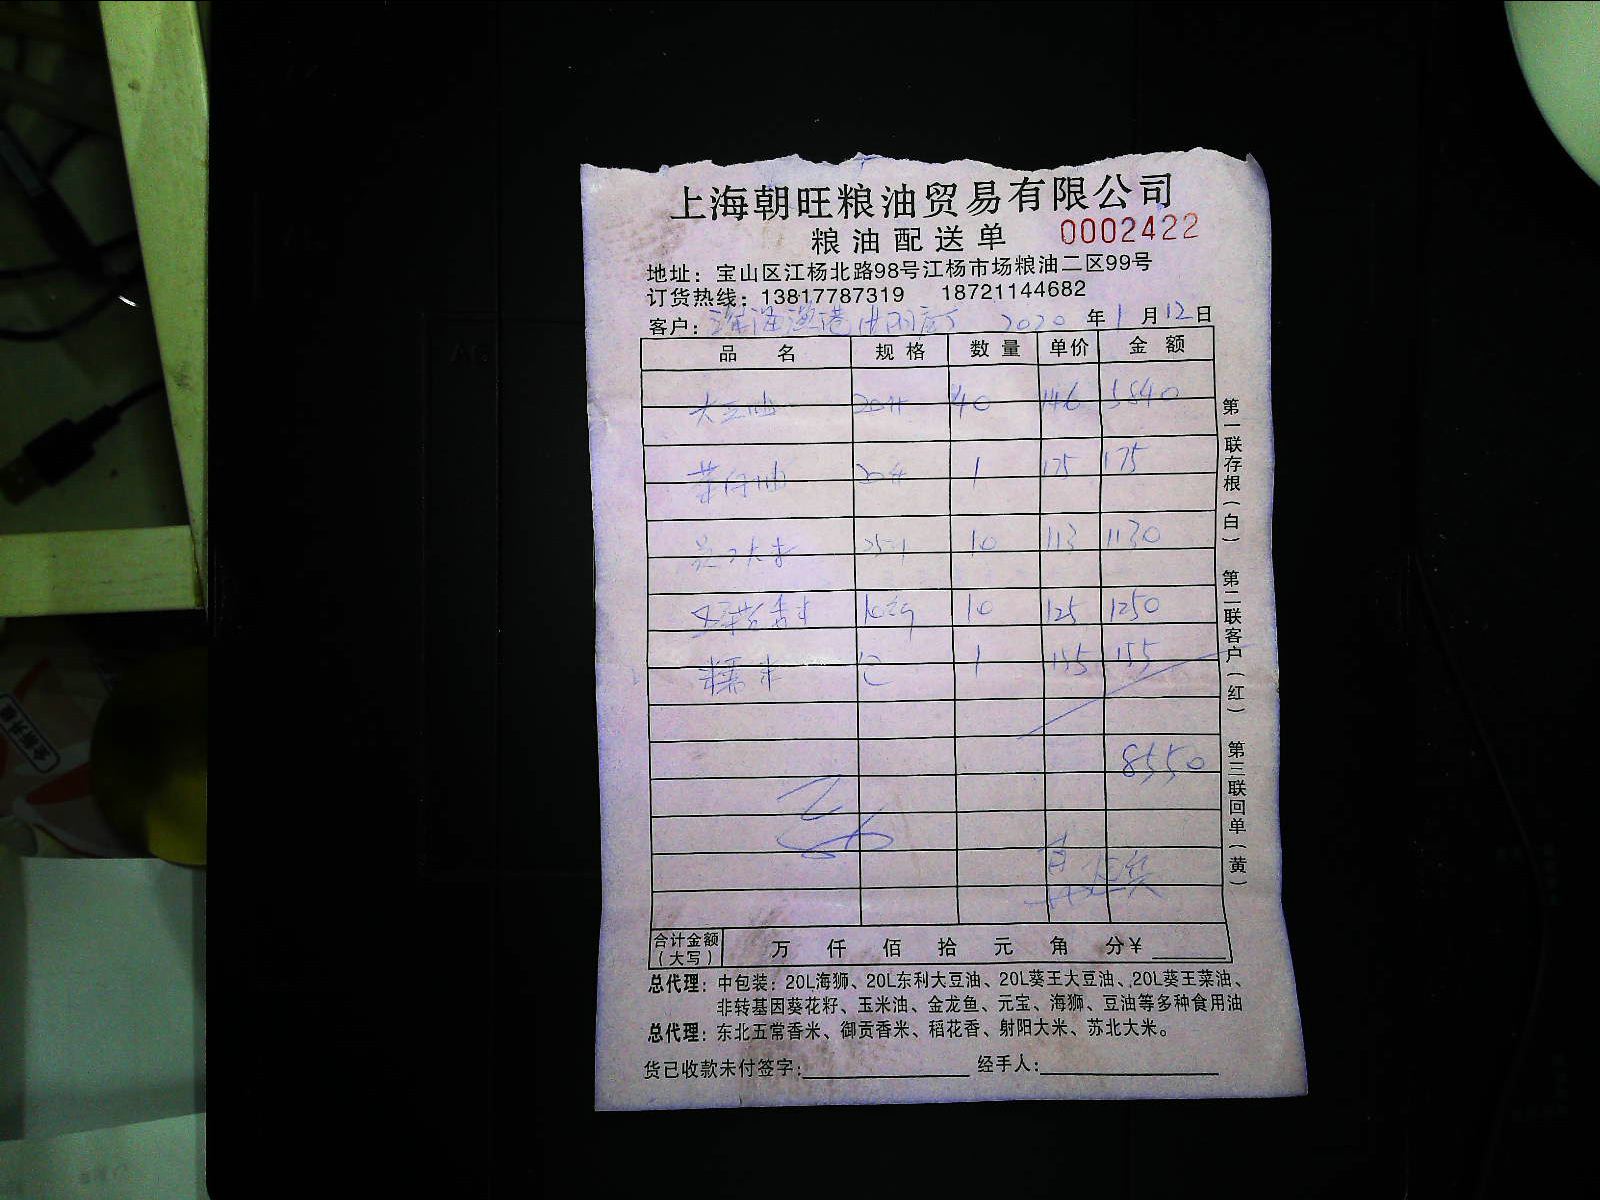 上海朝旺粮油贸易有限公司
粮油配送单 0002422
地址：宝山区江杨北路98号江杨市场粮油二区99号
订货热线：13817787319 18721144682
客户： 2020 年 1 月 12 日
品名 规格 数量 单价 金额
大豆油 20升 40 146 5840
菜籽油 20升 1 175 175
大米 10 113 1130
香米 10kg 10 125 1250
糯米 包 1 155 155
8550
合计金额（大写） 万 仟 佰 拾 元 角 分￥
总代理：中包装：20L海狮、20L东利大豆油、20L葵王大豆油、20L葵王菜油、
非转基因葵花籽、玉米油、金龙鱼、元宝、海狮、豆油等多种食用油
总代理：东北五常香米、御贡香米、稻花香、射阳大米、苏北大米。
货已收款未付签字： 经手人：
第一联存根（白） 第二联客户（红） 第三联回单（黄）